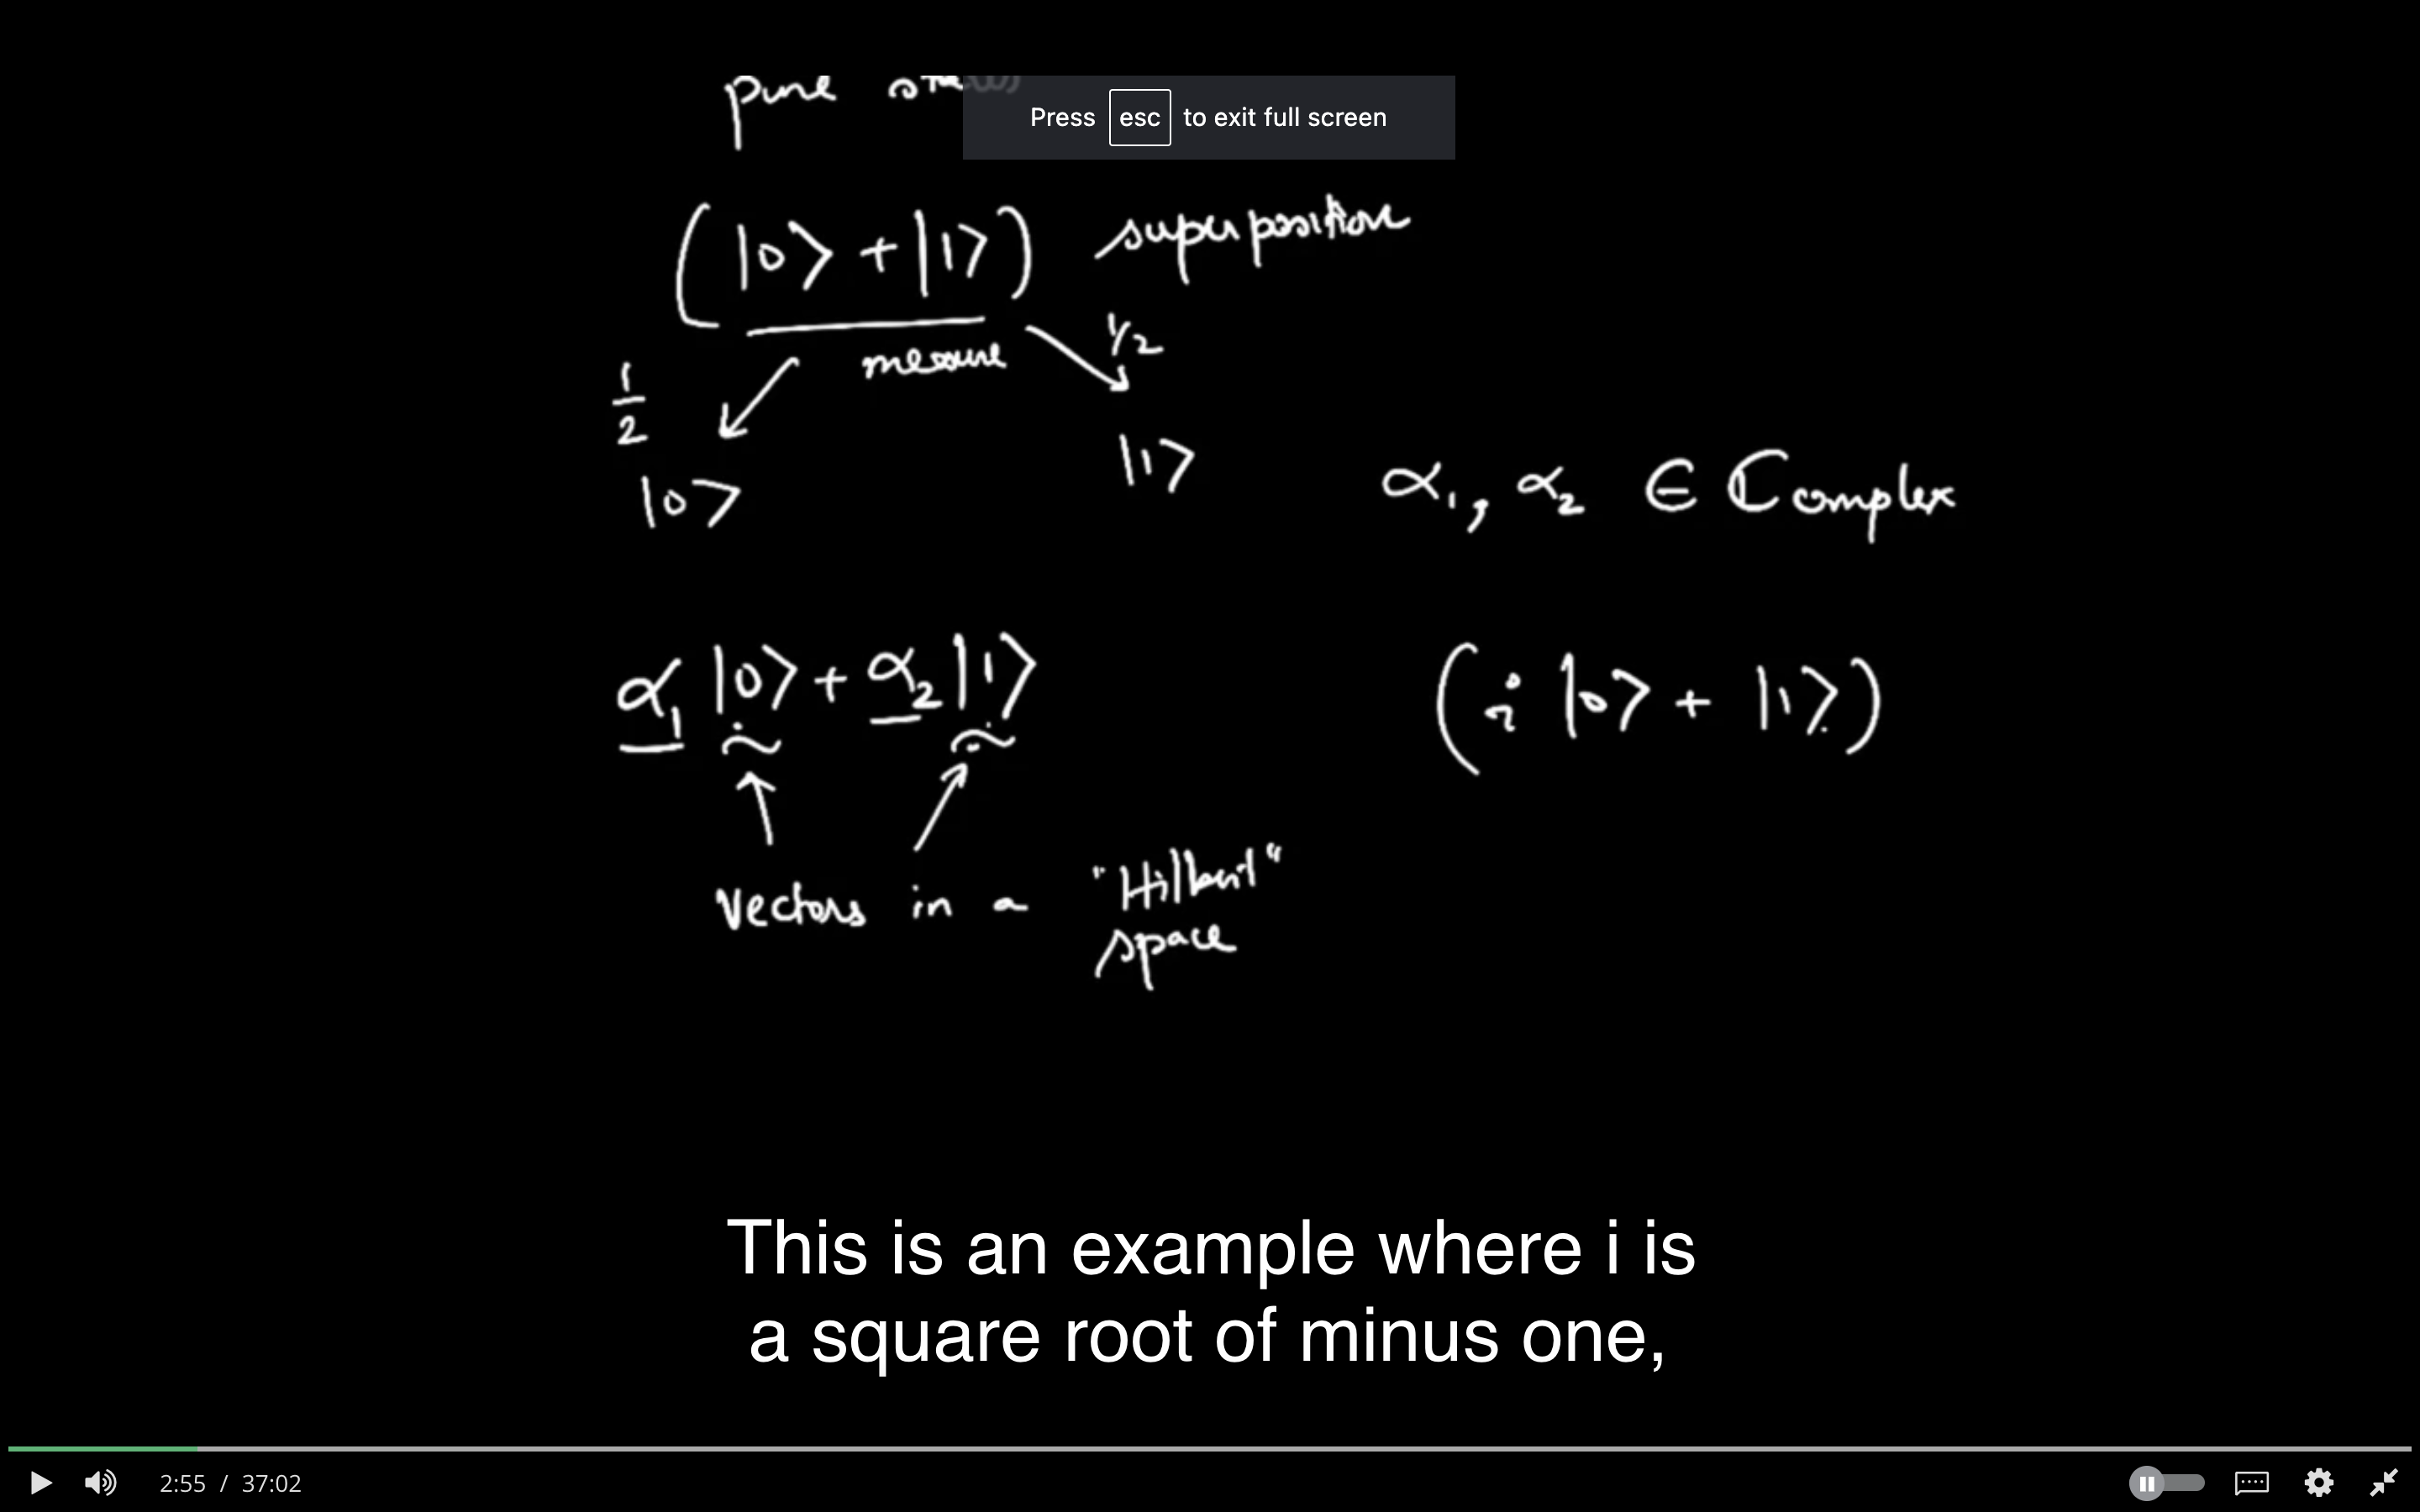 pure
Press esc to exit full screen
(|0> + |1>) superposition
measure
1/2
1/2
|0>
|1>
α1, α2 ∈ Complex
α1 |0> + α2 |1>
(i |0> + |1>)
vectors in a "Hilbert"
space
This is an example where i is
a square root of minus one,
2:55 / 37:02